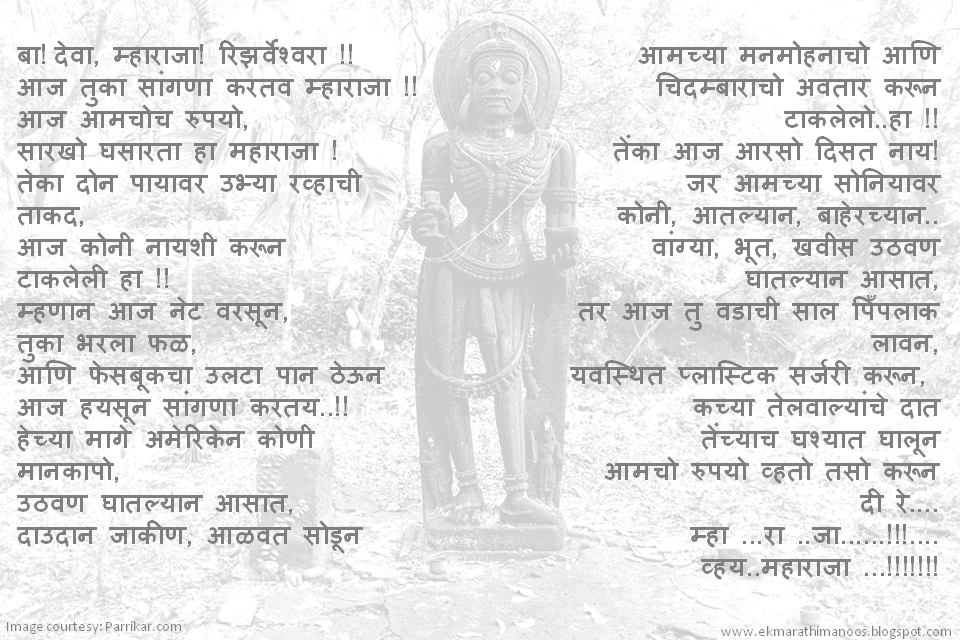 बा! देवा, म्हाराजा! रिझर्वेश्वरा !!
आज तुका सांगणा करतव म्हाराजा !!
आज आमचोच रुपयो,
सारखो घसारता हा महाराजा !
तेका दोन पायावर उभ्या रव्हाची
ताकद,
आज कोनी नायशी करून
टाकलेली हा !!
म्हणान आज नेट वरसून,
तुका भरला फळ,
आणि फेसबूकचा उलटा पान ठेऊन
आज हयसून सांगणा करतय..!!
हेच्या मागे अमेरिकेन कोणी
मानकापो,
उठवण घातल्यान आसात,
दाउदान जाकीण, आळवत सोडून
आमच्या मनमोहनाचो आणि
चिदम्बाराचो अवतार करून
टाकलेलो..हा !!
तेंका आज आरसो दिसत नाय!
जर आमच्या सोनियावर
कोनी, आतल्यान, बाहेरच्यान..
वांग्या, भूत, खवीस उठवण
घातल्यान आसात,
तर आज तु वडाची साल पिँपलाक
लावन,
यवस्थित प्लास्टिक सर्जरी करून,
कच्या तेलवाल्यांचे दात
तेंच्याच घश्यात घालून
आमचो रुपयो व्हतो तसो करून
दी रे....
म्हा ...रा ..जा......!!!....
व्हय..महाराजा ...!!!!!!!
Image courtesy: Parrikar.com
www.ekmarathimanoos.blogspot.com